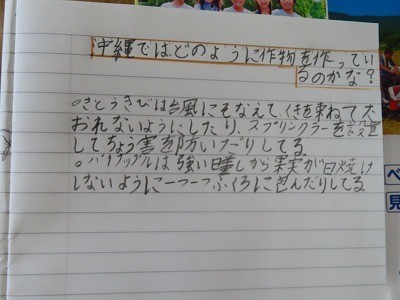 沖縄ではどのように作物を作ってい
るのかな?
○さとうきびは台風にそなえて、くきを束ねてた
おれないようにしたり、スプリンクラーを設置
してちょう害を防いだりしてる
○パイナップルは強い しから果実が日焼け
しないように一つ一つふくろに包んだりしてる
ベ
見